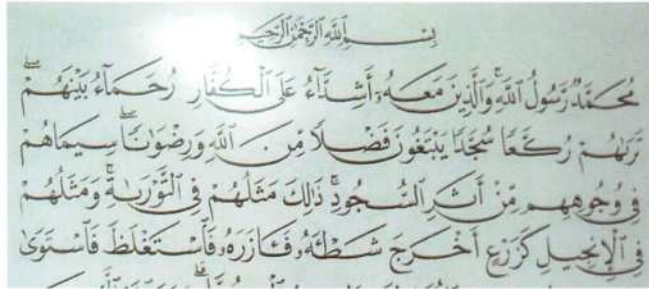 بِسْمِ اللَّهِ الرَّحْمَٰنِ الرَّحِيمِ
مُحَمَّدٌ رَسُولُ اللَّهِ ۚ وَالَّذِينَ مَعَهُ أَشِدَّاءُ عَلَى الْكُفَّارِ رُحَمَاءُ بَيْنَهُمْ ۖ
تَرَىٰهُمْ رُكَّعًا سُجَّدًا يَبْتَغُونَ فَضْلًا مِنَ اللَّهِ وَرِضْوَٰنًا ۖ سِيمَاهُمْ
فِي وُجُوهِهِم مِّنْ أَثَرِ السُّجُودِ ۚ ذَٰلِكَ مَثَلُهُمْ فِي التَّوْرَىٰةِ ۚ وَمَثَلُهُمْ
فِي الْإِنجِيلِ كَزَرْعٍ أَخْرَجَ شَطْـَٔهُ فَـَٔازَرَهُ فَاسْتَغْلَظَ فَاسْتَوَىٰ